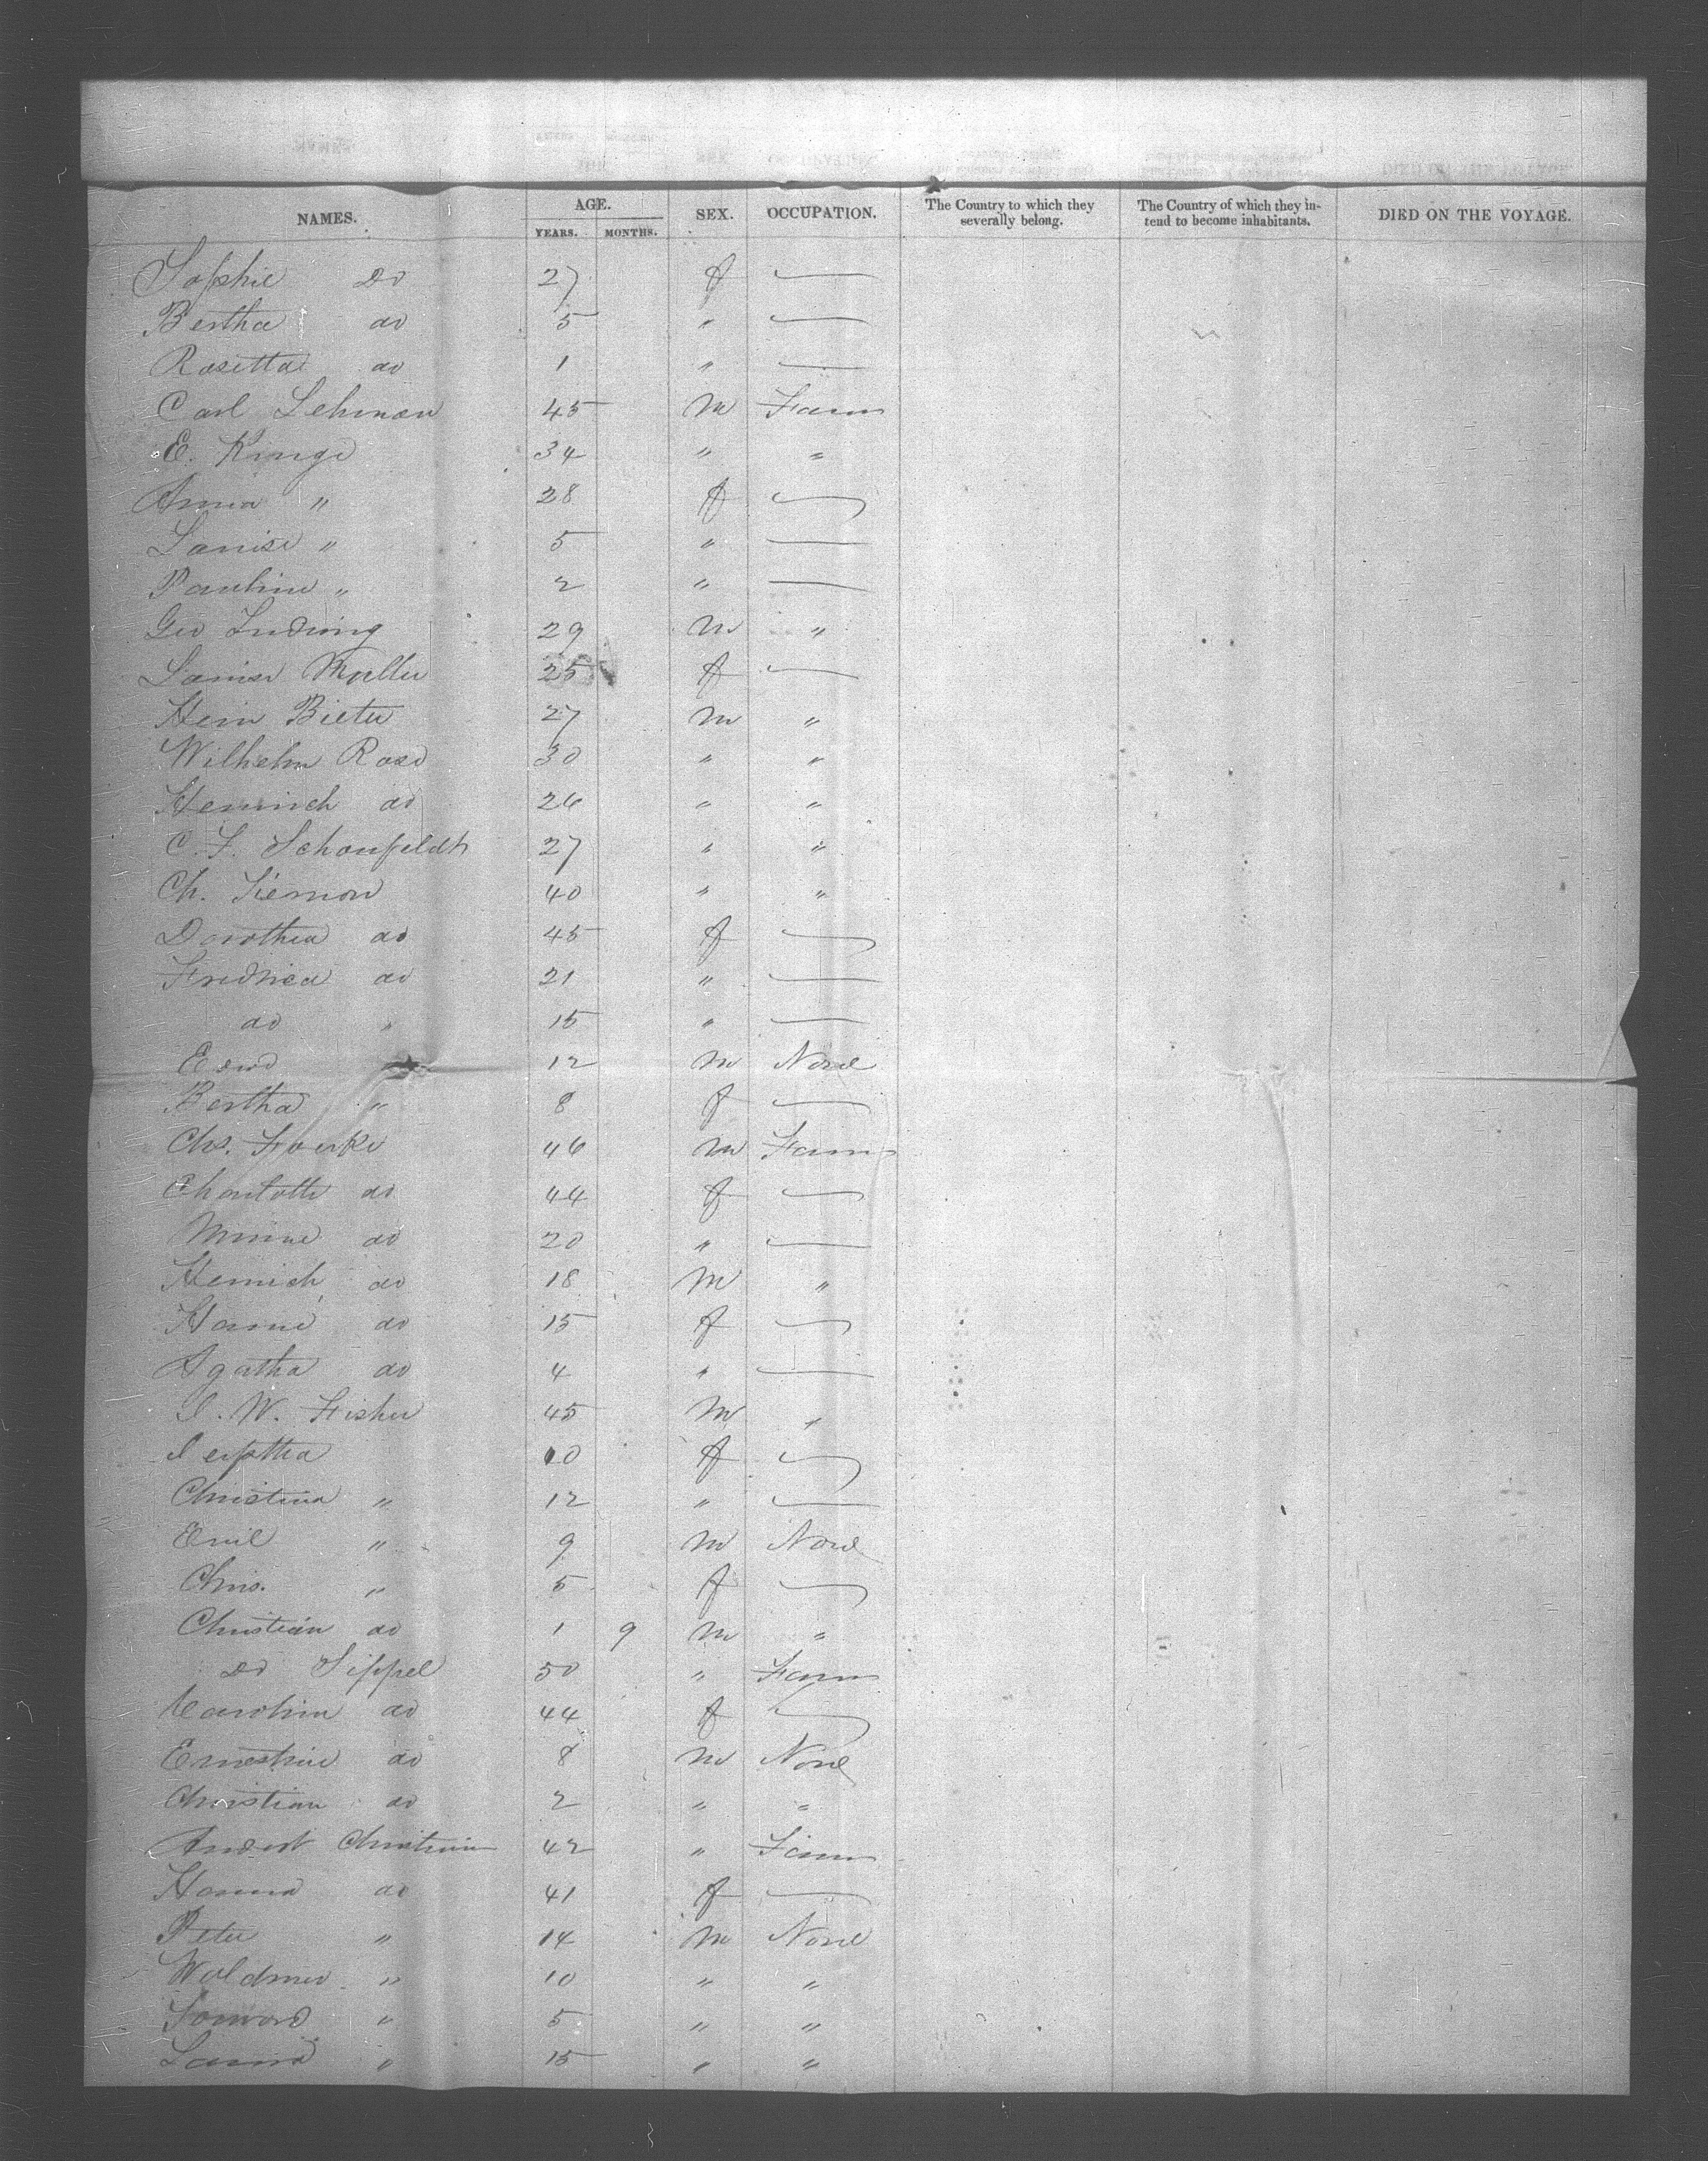 NAMES. AGE. SEX. OCCUPATION. The Country to which they severally belong. The Country of which they intend to become inhabitants. DIED ON THE VOYAGE.
YEARS. MONTHS.
Sophie Do 27 f —
Bertha do 5 " —
Rosetta do 1 " —
Carl Lehman 45 m Farm
E. Kinge 34 " "
Anna " 28 f —
Louise " 5 " —
Pauline " 2 " —
Geo Ludwig 29 m "
Louise Muller 25 f —
Hein Bieter 27 m "
Wilhelm Rose 30 " "
Heinrich do 26 " "
C. F. Schonfeldt 27 " "
Ch. Siemon 40 " "
Dorothea do 45 f —
Fredrica do 21 " —
do " 15 " —
Edwd " 12 m None
Bertha " 8 f —
Chs. Foerke 46 m Farm
Charlotte do 44 f —
Minne do 20 " —
Heinrich do 18 m "
Hanne do 15 f —
Agatha do 4 " —
J. W. Fisher 45 m "
10 f —
Christina " 12 " —
Emil " 9 m None
Chris. " 5 f —
Christian do 1 9 m "
Do Sippel 50 " Farm
Carolin do 44 f —
Ernestine do 8 m None
Christian do 2 " "
Christian 42 " Farm
Hanna do 41 f —
Peter " 14 m None
Woldmer " 10 " "
" 5 " "
" 15 " "